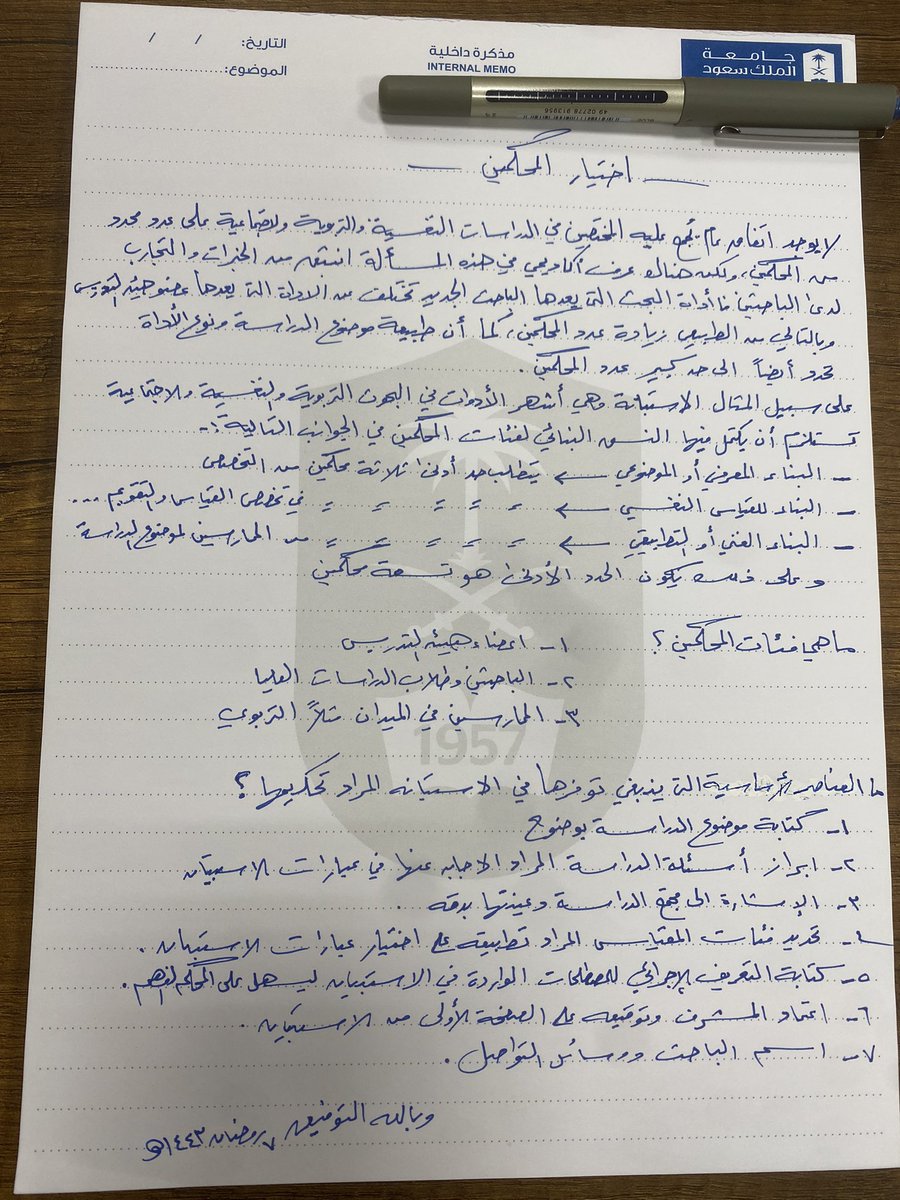 جامعة
الملك سعود
مذكرة داخلية
INTERNAL MEMO
التاريخ: / /
الموضوع:
49 02778 913956
اختيار المحكمين
لا يوجد اتفاق عام يجمع عليه المختصين في الدراسات النفسية والتربوية والاجتماعية على عدد محدد
من المحكمين، ولكن هناك عرف أكاديمي في هذه المسألة انبثق من الخبرات والتجارب
لدى الباحثين فأداة البحث التي يعدها الباحث الجديد تختلف عن الاداة التي يعدها عضو هيئة التدريس
وبالتالي من الطبيعي زيادة عدد المحكمين، كما أن طبيعة موضوع الدراسة ونوع الأداة
تحدد أيضاً الى حد كبير عدد المحكمين.
على سبيل المثال الاستبانة وهي أشهر الأدوات في البحوث التربوية والنفسية والاجتماعية
تستلزم أن يكتمل فيها النسق البنائي لفئات المحكمين في الجوانب التالية:-
- البناء المعرفي أو الموضوعي ← يتطلب حد أدنى ثلاثة محكمين من التخصص
- البناء للقياس النفسي ← = = = = = في تخصص القياس والتقويم ...
- البناء الفني أو التطبيقي ← = = = = = من الممارسين لموضوع الدراسة
وعلى ذلك يكون الحد الأدنى هو تسعة محكمين
ما هي فئات المحكمين؟ ١- اعضاء هيئة التدريس
٢- الباحثين وطلاب الدراسات العليا
٣- الممارسين في الميدان مثلاً التربوي
1957
ما العناصر الأساسية التي ينبغي توفرها في الاستبانه المراد تحكيمها؟
١- كتابة موضوع الدراسة بوضوح
٢- ابراز أسئلة الدراسة المراد الاجابه عنها في عبارات الاستبيان
٣- الإشارة الى مجتمع الدراسة وعينتها بدقه.
٤- تحديد فئات المقياس المراد تطبيقه على اختيار عبارات الاستبيان.
٥- كتابة التعريف الإجرائي للمصطلحات الواردة في الاستبيان ليسهل على المحكم الفهم.
٦- اعتماد المشرف وتوقيعه على الصفحة الأولى من الاستبيان.
٧- اسم الباحث ووسائل التواصل.
وبالله التوفيق ٧ رمضان ١٤٤٣هـ